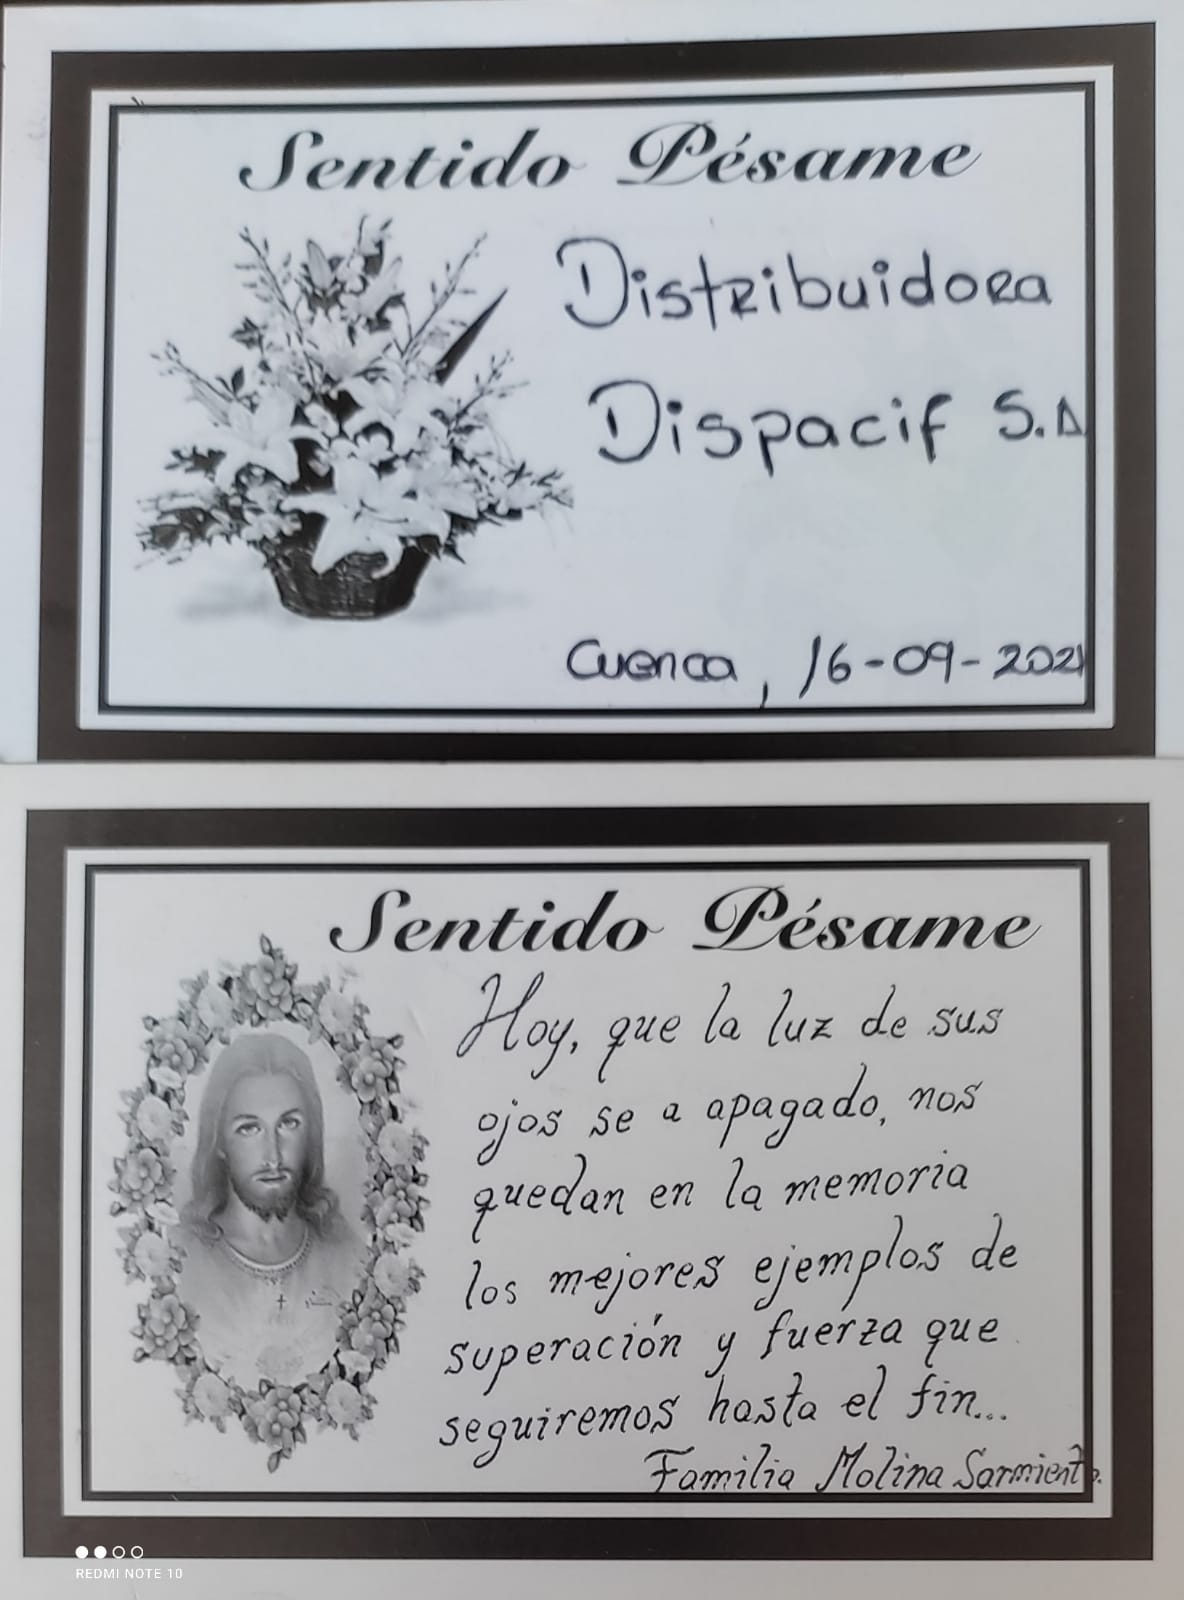 Sentido Pésame
Distribuidora
Dispacif S.A
Cuenca, 16-09-2021
Sentido Pésame
Hoy, que la luz de sus
ojos se a apagado, nos
quedan en la memoria
los mejores ejemplos de
superación y fuerza que
seguiremos hasta el fin...
Familia Molina Sarmiento.
REDMI NOTE 10